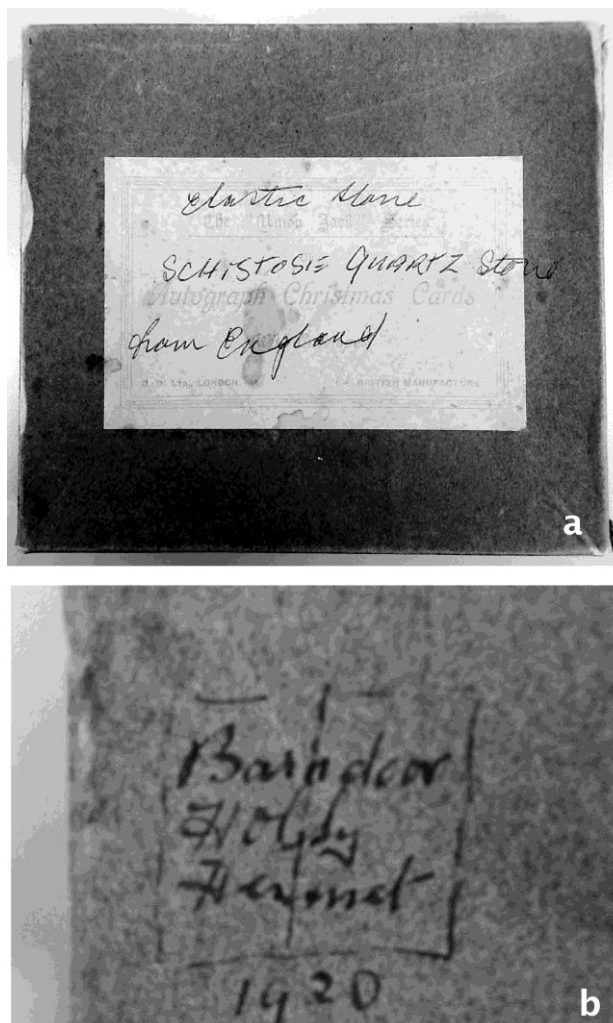 Elastic Stone
The Union Jack Series
SCHISTOSE QUARTZ Stone
Autograph Christmas Cards
from England
LTD., LONDON
BRITISH MANUFACTURE
a
Barndoor
Hermet
1920
b